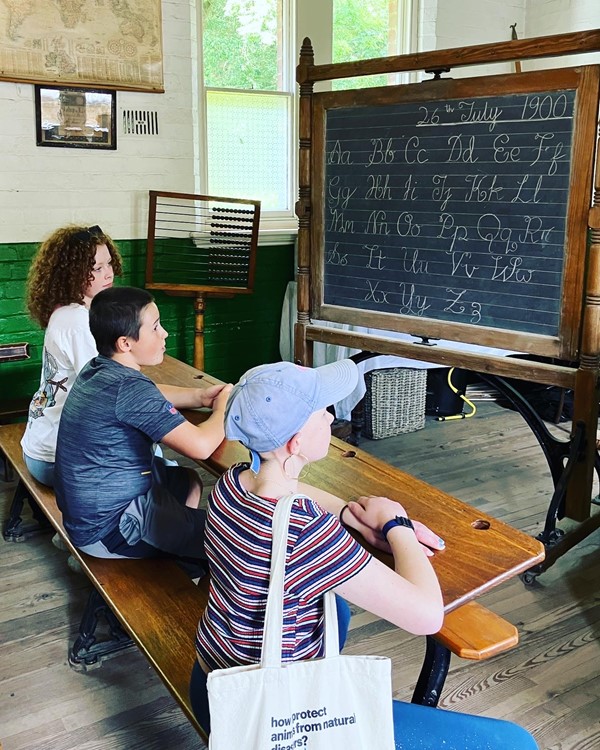 26th July 1900
Aa Bb Cc Dd Ee Ff
Gg Hh Ii Jj Kk Ll
Mm Nn Oo Pp Qq Rr
Ss Tt Uu Vv Ww
Xx Yy Zz
how protect
anim from natural
disa rs?